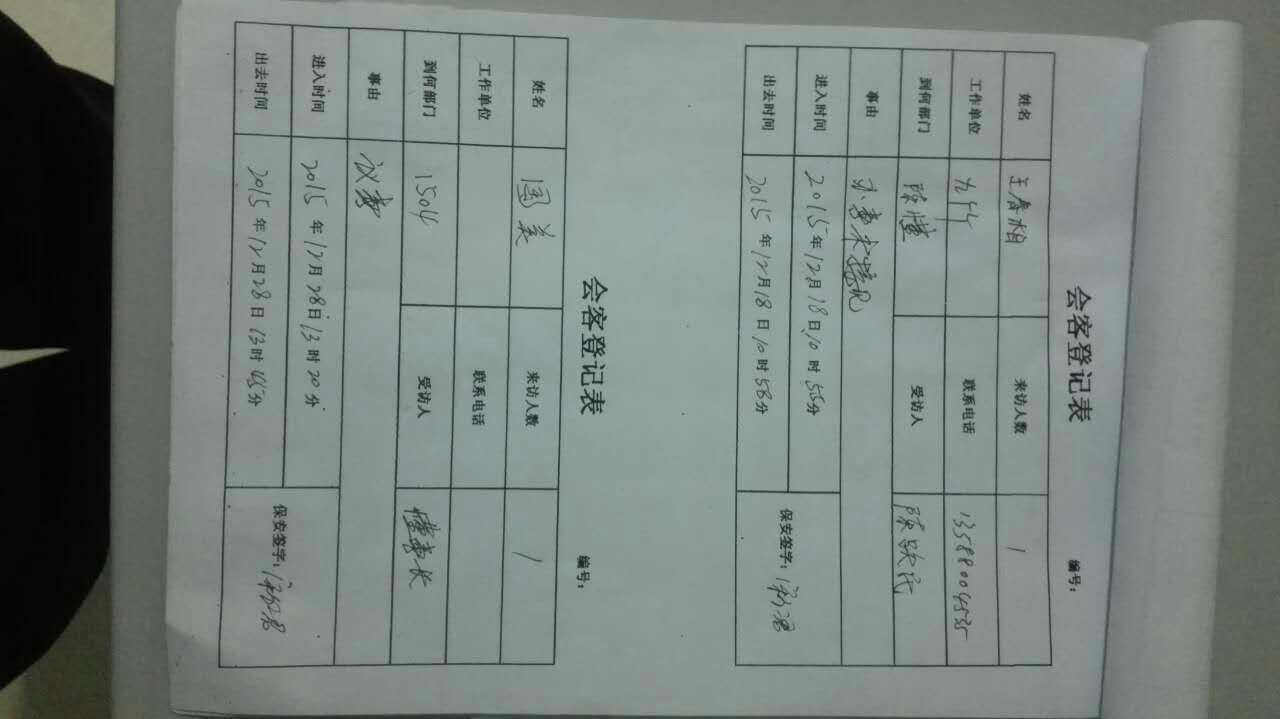 会客登记表
编号：
姓名 王春柏 来访人数 1
工作单位 联系电话 13588004535
到何部门 受访人
事由
进入时间 2015年12月18日10时55分
出去时间 2015年12月18日10时58分
保安签字：
会客登记表
编号：
姓名 国美 来访人数 1
工作单位 联系电话
到何部门 1504 受访人 董事长
事由 议事
进入时间 2015年12月28日13时20分
出去时间 2015年12月28日13时45分
保安签字：